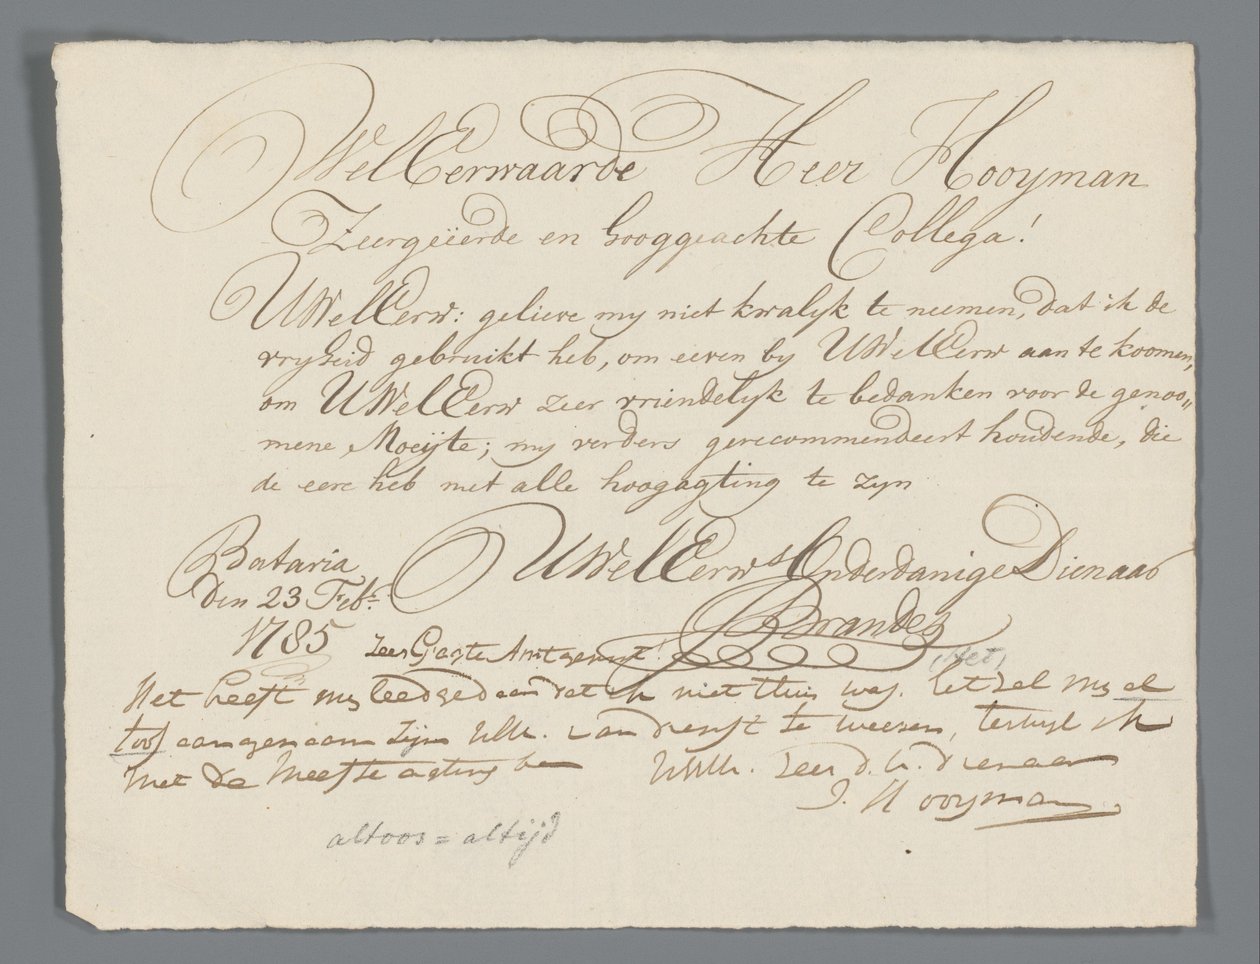 WelEerwaarde Heer Hooyman
Zeergeëerde en hooggeachte Collega!
UWelEerw: gelieve my niet kwalyk te neemen, dat ik de
vryheid gebruikt heb, om eeven by UWelEerw aan te koomen,
om UWelEerw zeer vriendelyk te bedanken voor de genoo„
mene Moeÿte; my verders gerecommendeert houdende, die
de eere heb met alle hoogagting te zyn
UWelEerws Onderdanige Dienaar
Batavia
den 23 Febr:
1785
Brandes
Zeer Geagte Amtgenoot!
(Het)
Het heeft my leed gedaan dat ik niet thuis was. Het zal my al
toos aangenaam zijn UWE. van dienst te weesen, terwyl ik
met de meeste agting ben UWE. zeer d.w. dienaar
J. Hooyman
altoos = altijd